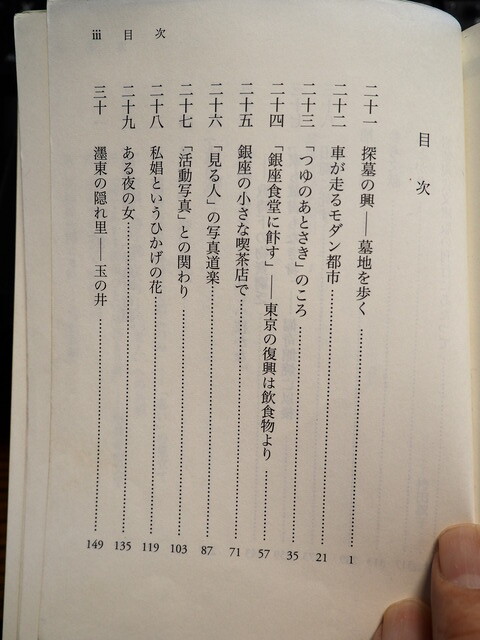 iii 目次
目次
二十一 探墓の興――墓地を歩く 1
二十二 車が走るモダン都市 21
二十三 「つゆのあとさき」のころ 35
二十四 「銀座食堂に飰す」――東京の復興は飲食物より 57
二十五 銀座の小さな喫茶店で 71
二十六 「見る人」の写真道楽 87
二十七 「活動写真」との関わり 103
二十八 私娼というひかげの花 119
二十九 ある夜の女 135
三十 濹東の隠れ里――玉の井 149